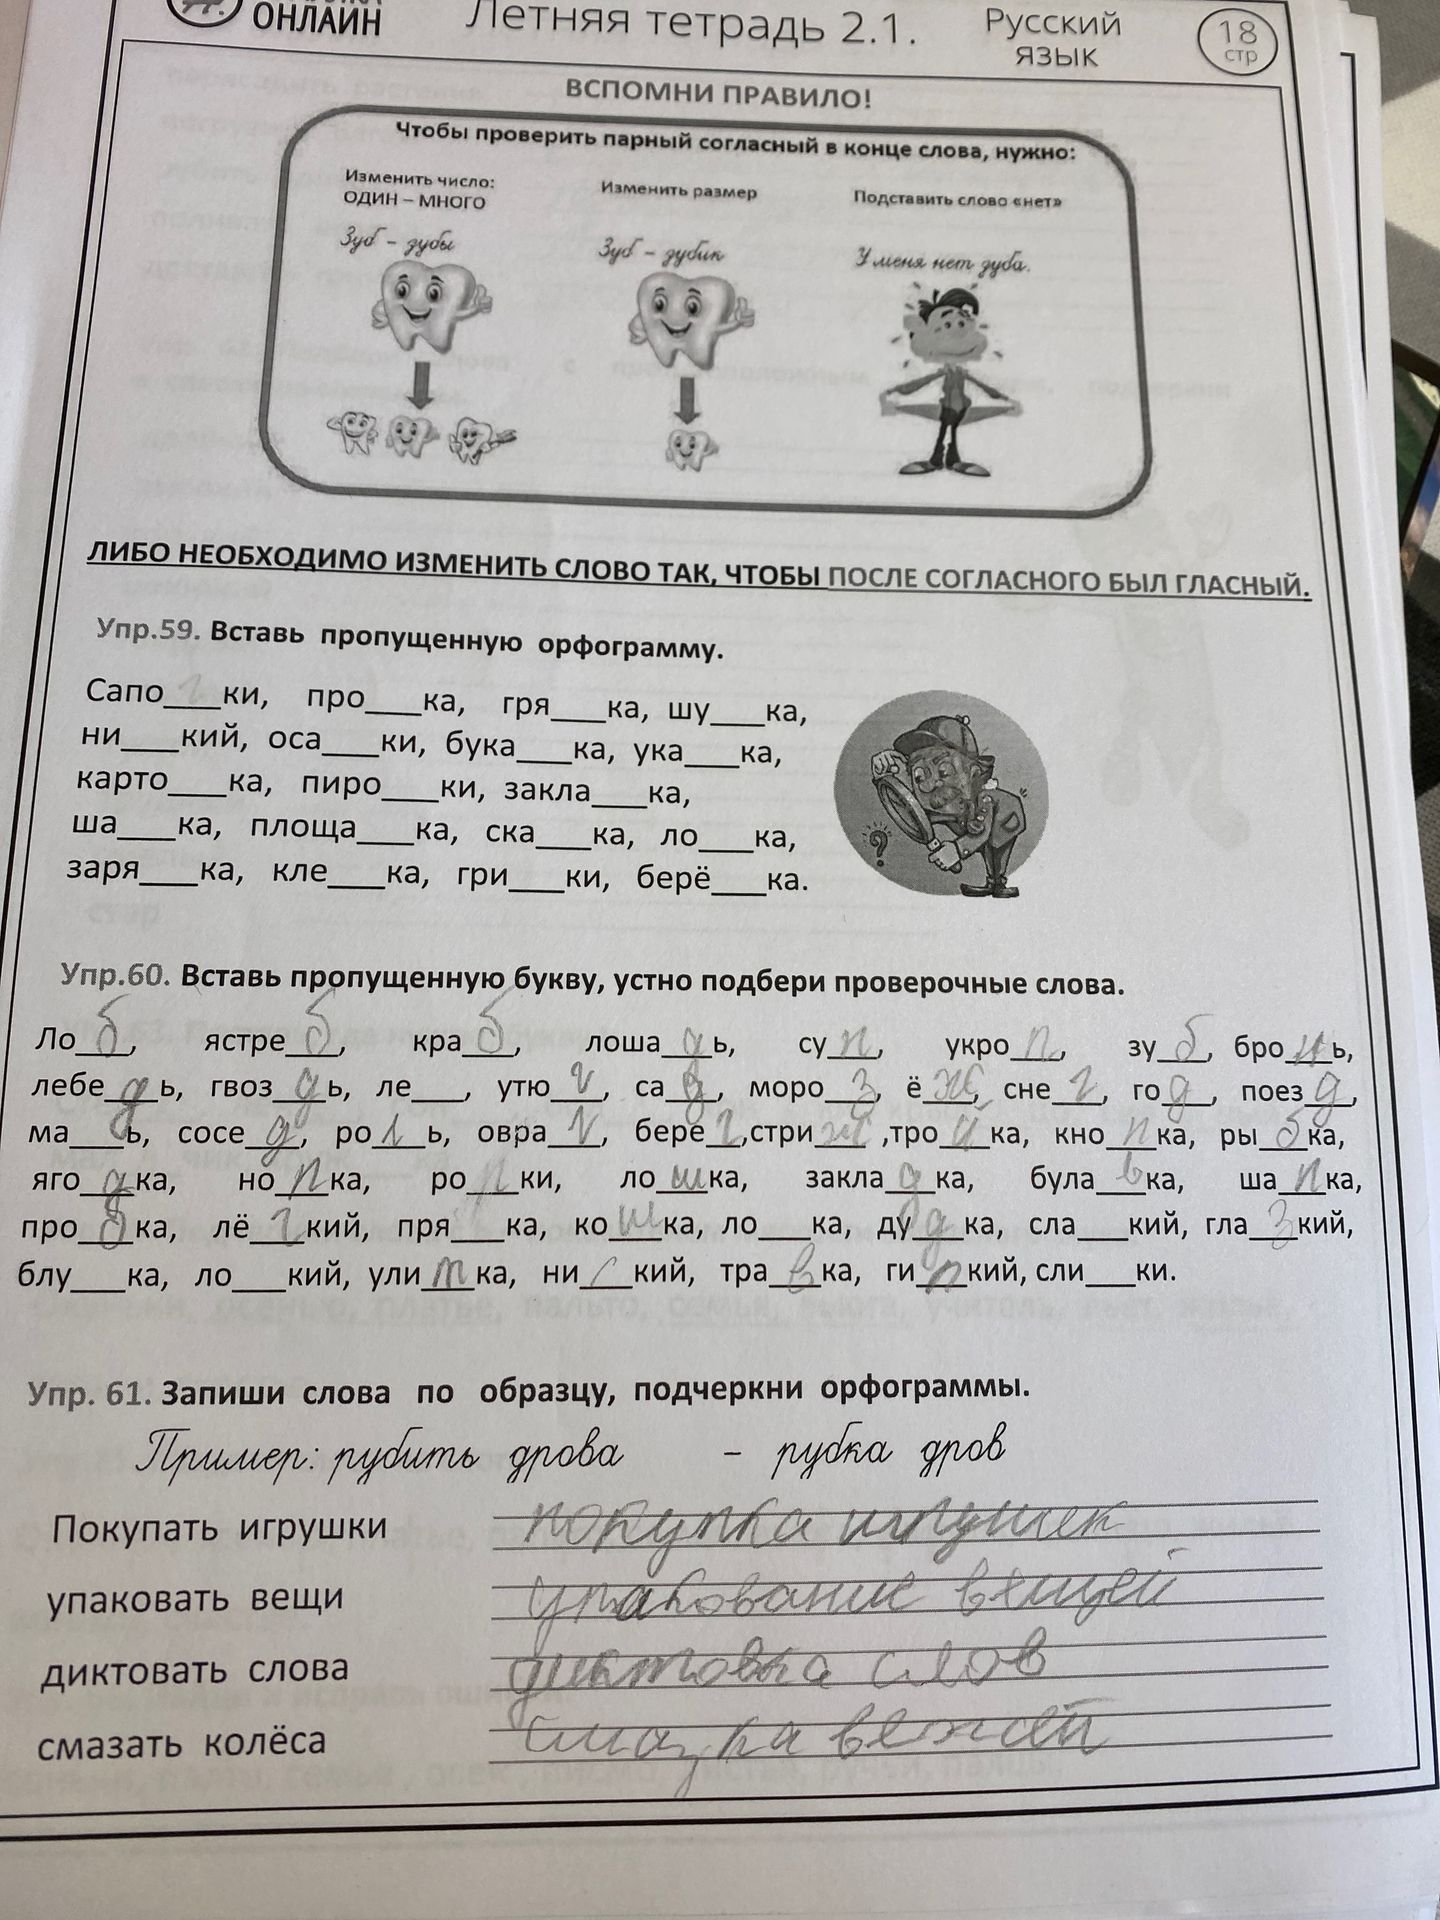 ОНЛАЙН
Летняя тетрадь 2.1.
Русский
язык
18
стр
ВСПОМНИ ПРАВИЛО!
Чтобы проверить парный согласный в конце слова, нужно:
Изменить число:
ОДИН – МНОГО
Изменить размер
Подставить слово «нет»
Зуб – зубы
Зуб – зубик
У меня нет зуба.
ЛИБО НЕОБХОДИМО ИЗМЕНИТЬ СЛОВО ТАК, ЧТОБЫ ПОСЛЕ СОГЛАСНОГО БЫЛ ГЛАСНЫЙ.
Упр.59. Вставь пропущенную орфограмму.
Сапо_г_ки, про___ка, гря___ка, шу___ка,
ни___кий, оса___ки, бука___ка, ука___ка,
карто___ка, пиро___ки, закла___ка,
ша___ка, площа___ка, ска___ка, ло___ка,
заря___ка, кле___ка, гри___ки, берё___ка.
?
Упр.60. Вставь пропущенную букву, устно подбери проверочные слова.
Ло_б_, ястре_б_, кра_б_, лоша_д_ь, су_п_, укро_п_, зу_б_, бро_н_ь,
лебе_д_ь, гвоз_д_ь, ле___, утю_г_, са_д_, моро_з_, ё_ж_, сне_г_, го_д_, поез_д_,
ма___ь, сосе_д_, ро_л_ь, овра_г_, бере_г_,стри_ж_ ,тро_й_ка, кно_п_ка, ры_б_ка,
яго_д_ка, но_п_ка, ро_п_ки, ло_ш_ка, закла_д_ка, була_в_ка, ша_п_ка,
про_б_ка, лё_г_кий, пря___ка, ко_ш_ка, ло___ка, ду_д_ка, сла___кий, гла_з_кий,
блу___ка, ло___кий, ули_т_ка, ни_с_кий, тра_в_ка, ги_п_кий, сли___ки.
Упр. 61. Запиши слова по образцу, подчеркни орфограммы.
Пример: рубить дрова – рубка дров
Покупать игрушки покупка игрушек
упаковать вещи упакование вещей
диктовать слова диктовка слов
смазать колёса смазка